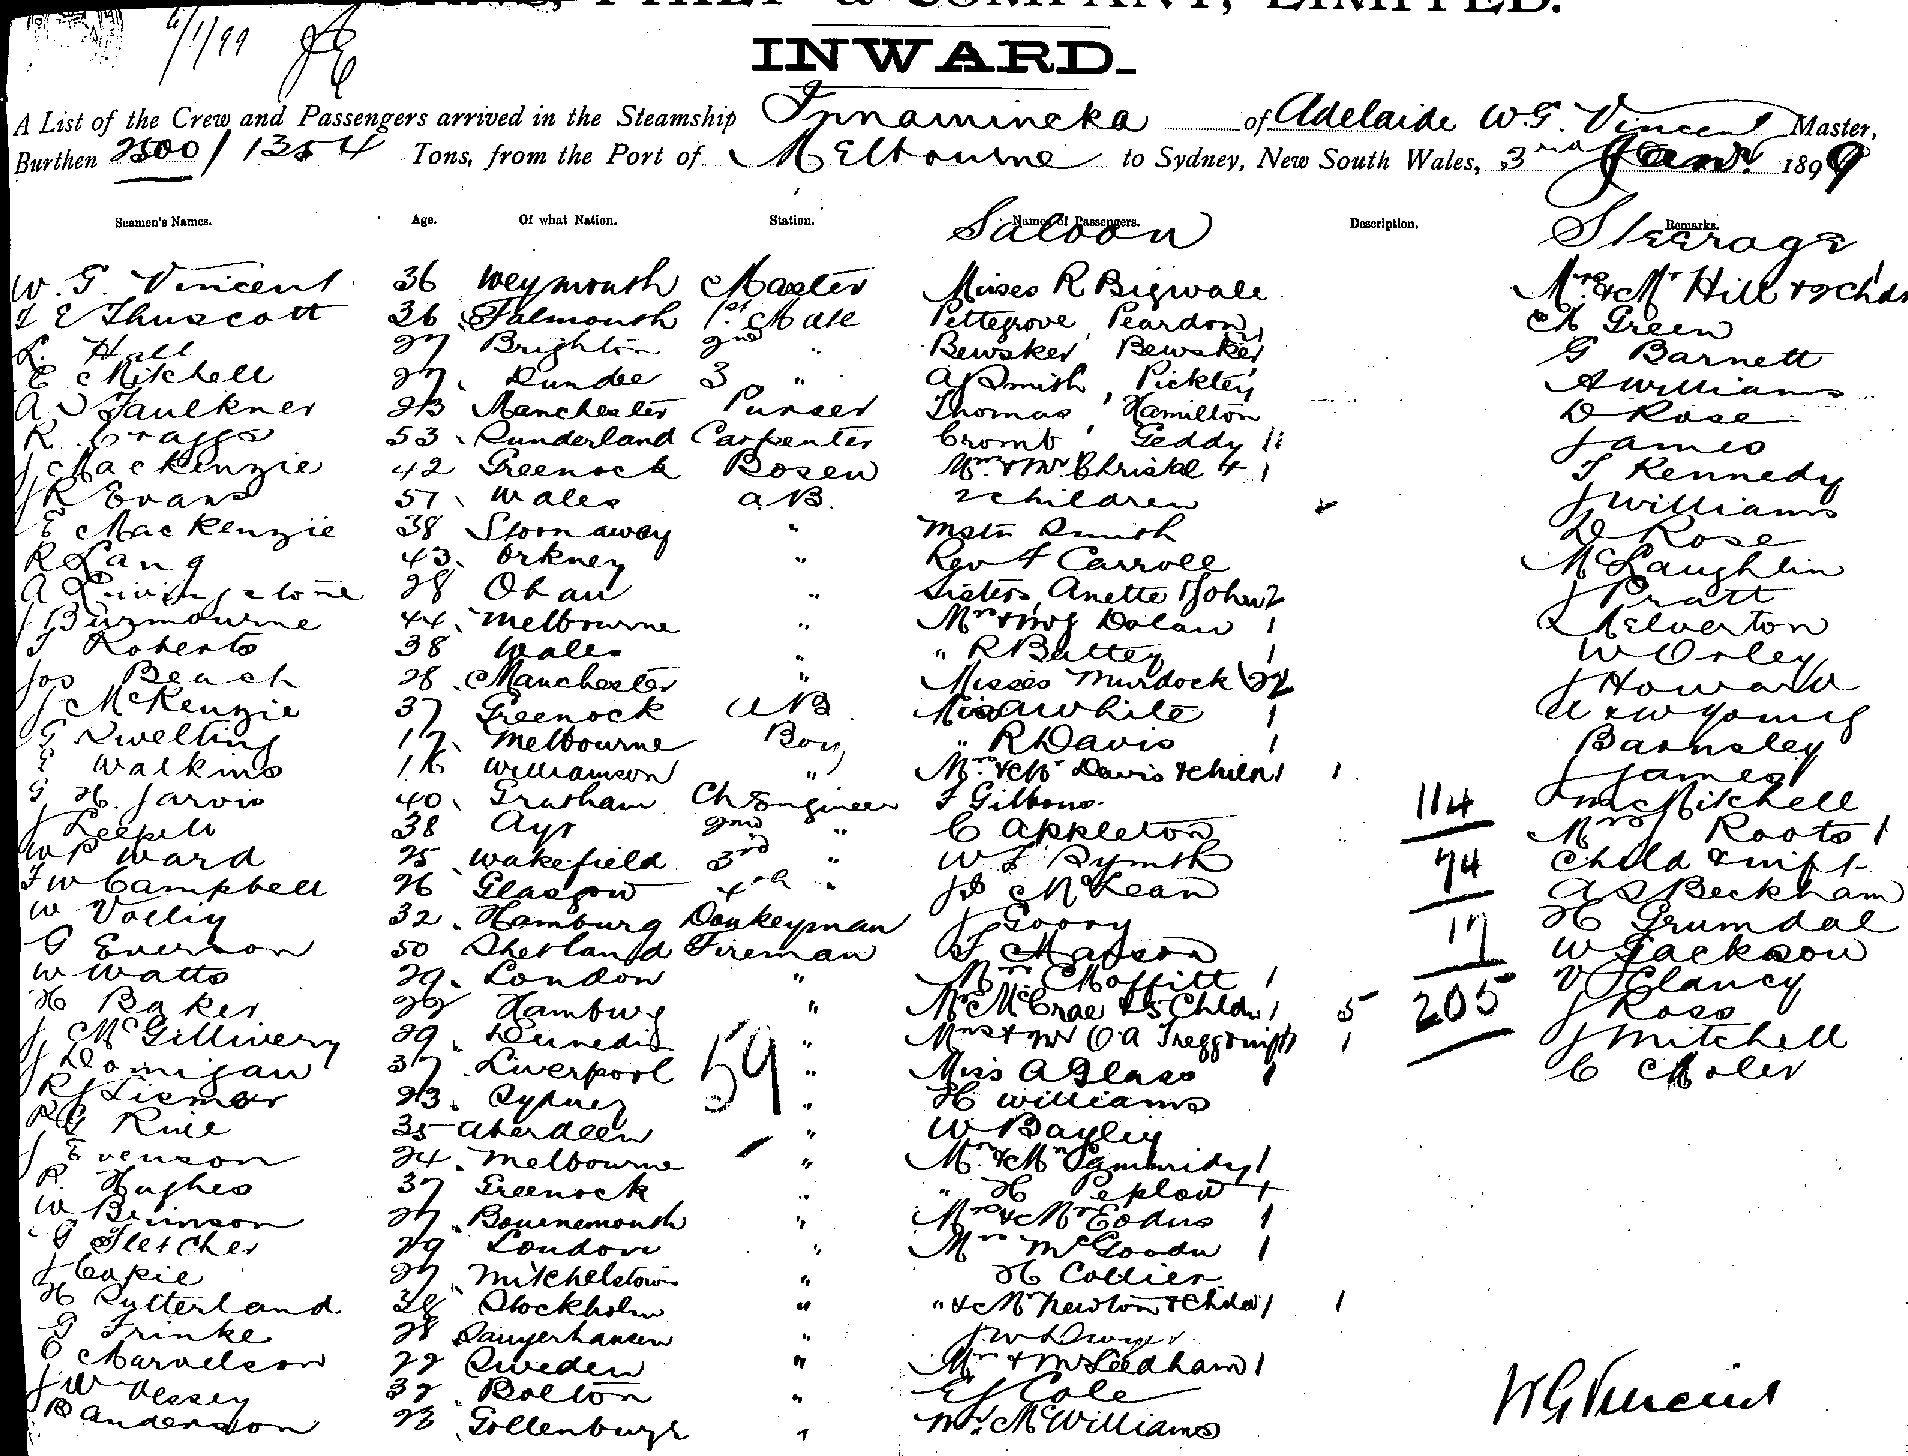 & COMPANY, LIMITED.
6/1/99
INWARD.
A List of the Crew and Passengers arrived in the Steamship Innamincka of Adelaide W.G. Vincent Master,
Burthen 2500/1354 Tons, from the Port of Melbourne to Sydney, New South Wales, 3rd Jany. 1899
Seamen's Names. Age. Of what Nation. Station. Names of Passengers. Description. Remarks.
Saloon Steerage
W. G. Vincent 36 Weymouth Master Misses R Bigwale Mrs & Mr Hill & 2 Chds
Thuscott 36 Falmouth 1st Mate Pettegrove, Peardon, A Green
L. Hall 27 Brighton 2nd " Bewsker, Bewsker, G Barnett
E Mitchell 27. Dundee 3 " A Smith, Pickley, A Williams
A J Faulkner 23 Manchester Purser Thomas, Hamilton D Rose
R. Craggs 53. Sunderland Carpenter Cromb, Geddy 11 James
J MacKenzie 42 Greenock Bosen Mrs & Mr & 1 T Kennedy
J R Evans 51. Wales A.B. 2 children J Williams
E MacKenzie 38 Stornaway " Mstr Smith D Rose
R Lang 43. Orkney " Rev F Carroll McLaughlin
A Livingstone 28 Oban " Sisters, Anette & John 2 J Pratt
J Burmourne 44. Melbourne " Mrs & Dolan 1 Melverton
T Roberts 38 Wales " " R Battey 1 W Orley
Jos Beach 28. Manchester " Misses Murdock (2) 2 J Howard
J McKenzie 37 Greenock AB Miss A White 1 A & W Young
G Swelting 17. Melbourne Boy " R Davis 1 Barnsley
E Walkins 16 Williamson " Mrs & Mr Davis & 1 1 J James
G H. Jarvis 40. Grusham Ch Engineer F Gibbons. 114 Mitchell
J 38 Ayr 2nd " C Appleton Mrs Roots 1
W P Ward 25. Wakefield 3rd " W F Symth 74 Child &
F W Campbell 26 Glasgow 4th " Js McLean A S Beckham
W 32. Hamburg Donkeyman J Goory 17 H Grumdal
G Everson 50 Shetland Fireman F Matson W Jackson
W Watts 29. London " Mrs Moffitt 1 V Clancy
H Baker 22 Hamburg " Mrs McCrae & 5 Chldn 1 5 205 J Ross
J McGillivery 29. Dunedin " Mrs & Mr O A 1 1 J Mitchell
J Domigan 37. Liverpool 59 " Miss A Glass 1 C Moler
R J Lismor 23. Sydney " H Williams
R G 35 Aberdeen " W Bayley
J Evenson 24. Melbourne " Mrs & Mr 1
R. Hughes 37 Greenock " " H Peplow 1
W Brinson 27. Bournemouth " Mrs & Mr Eodus 1
G Fletcher 29 London " Mrs McGoodu 1
J Capie 27. Mitchelstown " H Collier
H Sutterland 38 Stockholm " " & Mr Newton & Chdn 1 1
G Frinke 28 Sangerhausen " J W Dwyer
C Marvelson 22 Sweden " Mrs & Mr Leedham 1
J W Vessey 32. Bolton " E J Cole
B Anderson 23 Gottenburgh " Mr McWilliams
W G Vincent